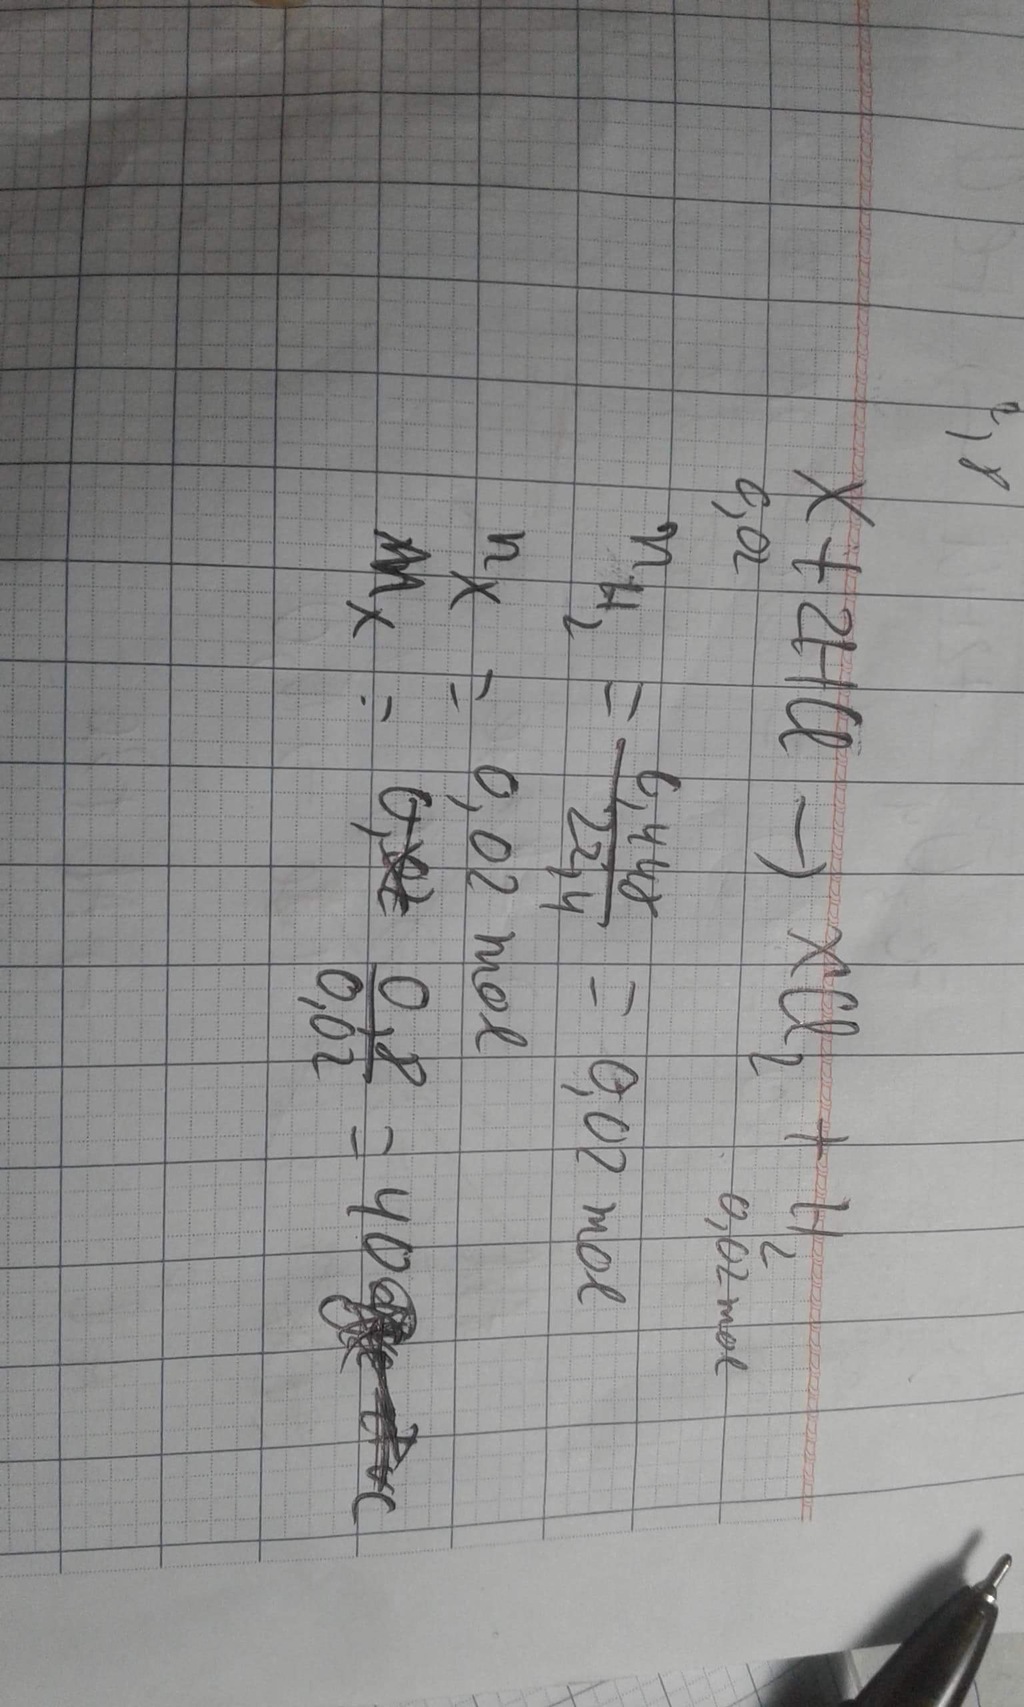 X + 2HCl → XCl₂ + H₂
0,02 0,02 mol
n H₂ = 0,448 / 22,4 = 0,02 mol
n X = 0,02 mol
M X = 0,8 / 0,02 = 40